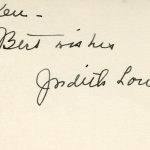 Best wishes
Judith Low